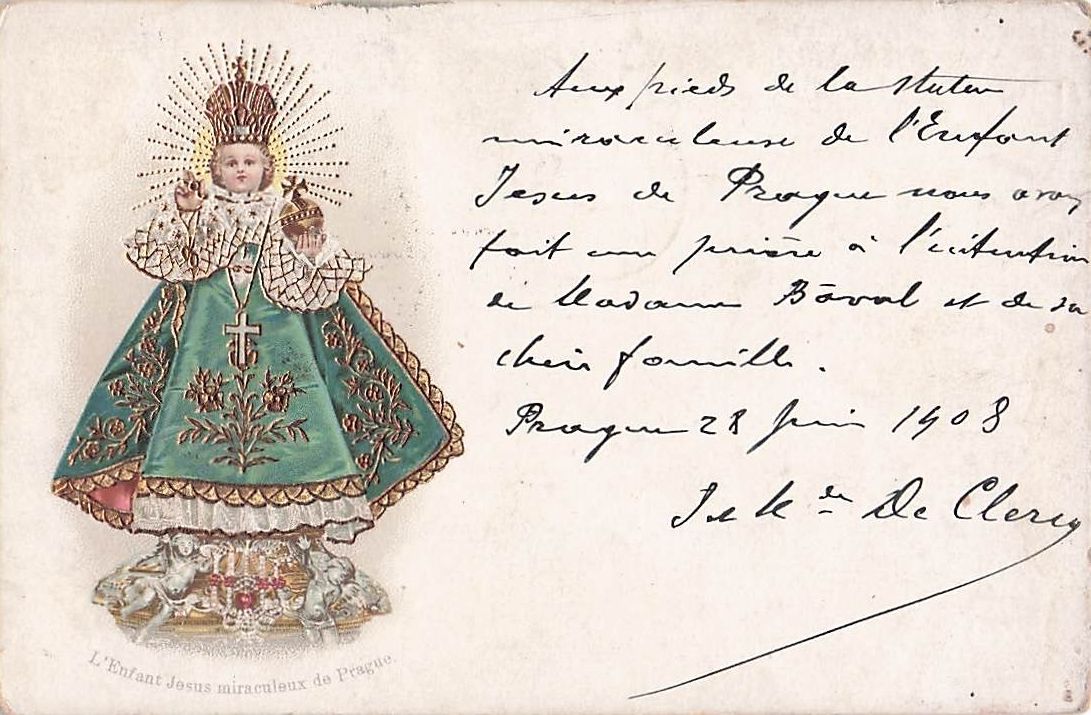 Aux pieds de la statue
miraculeuse de l'Enfant
Jesus de Prague nous avons
fait une prière à l'intention
de Madame et de sa
chère famille.
Prague 28 juin 1908
De Clercq
L'Enfant Jesus miraculeux de Prague.